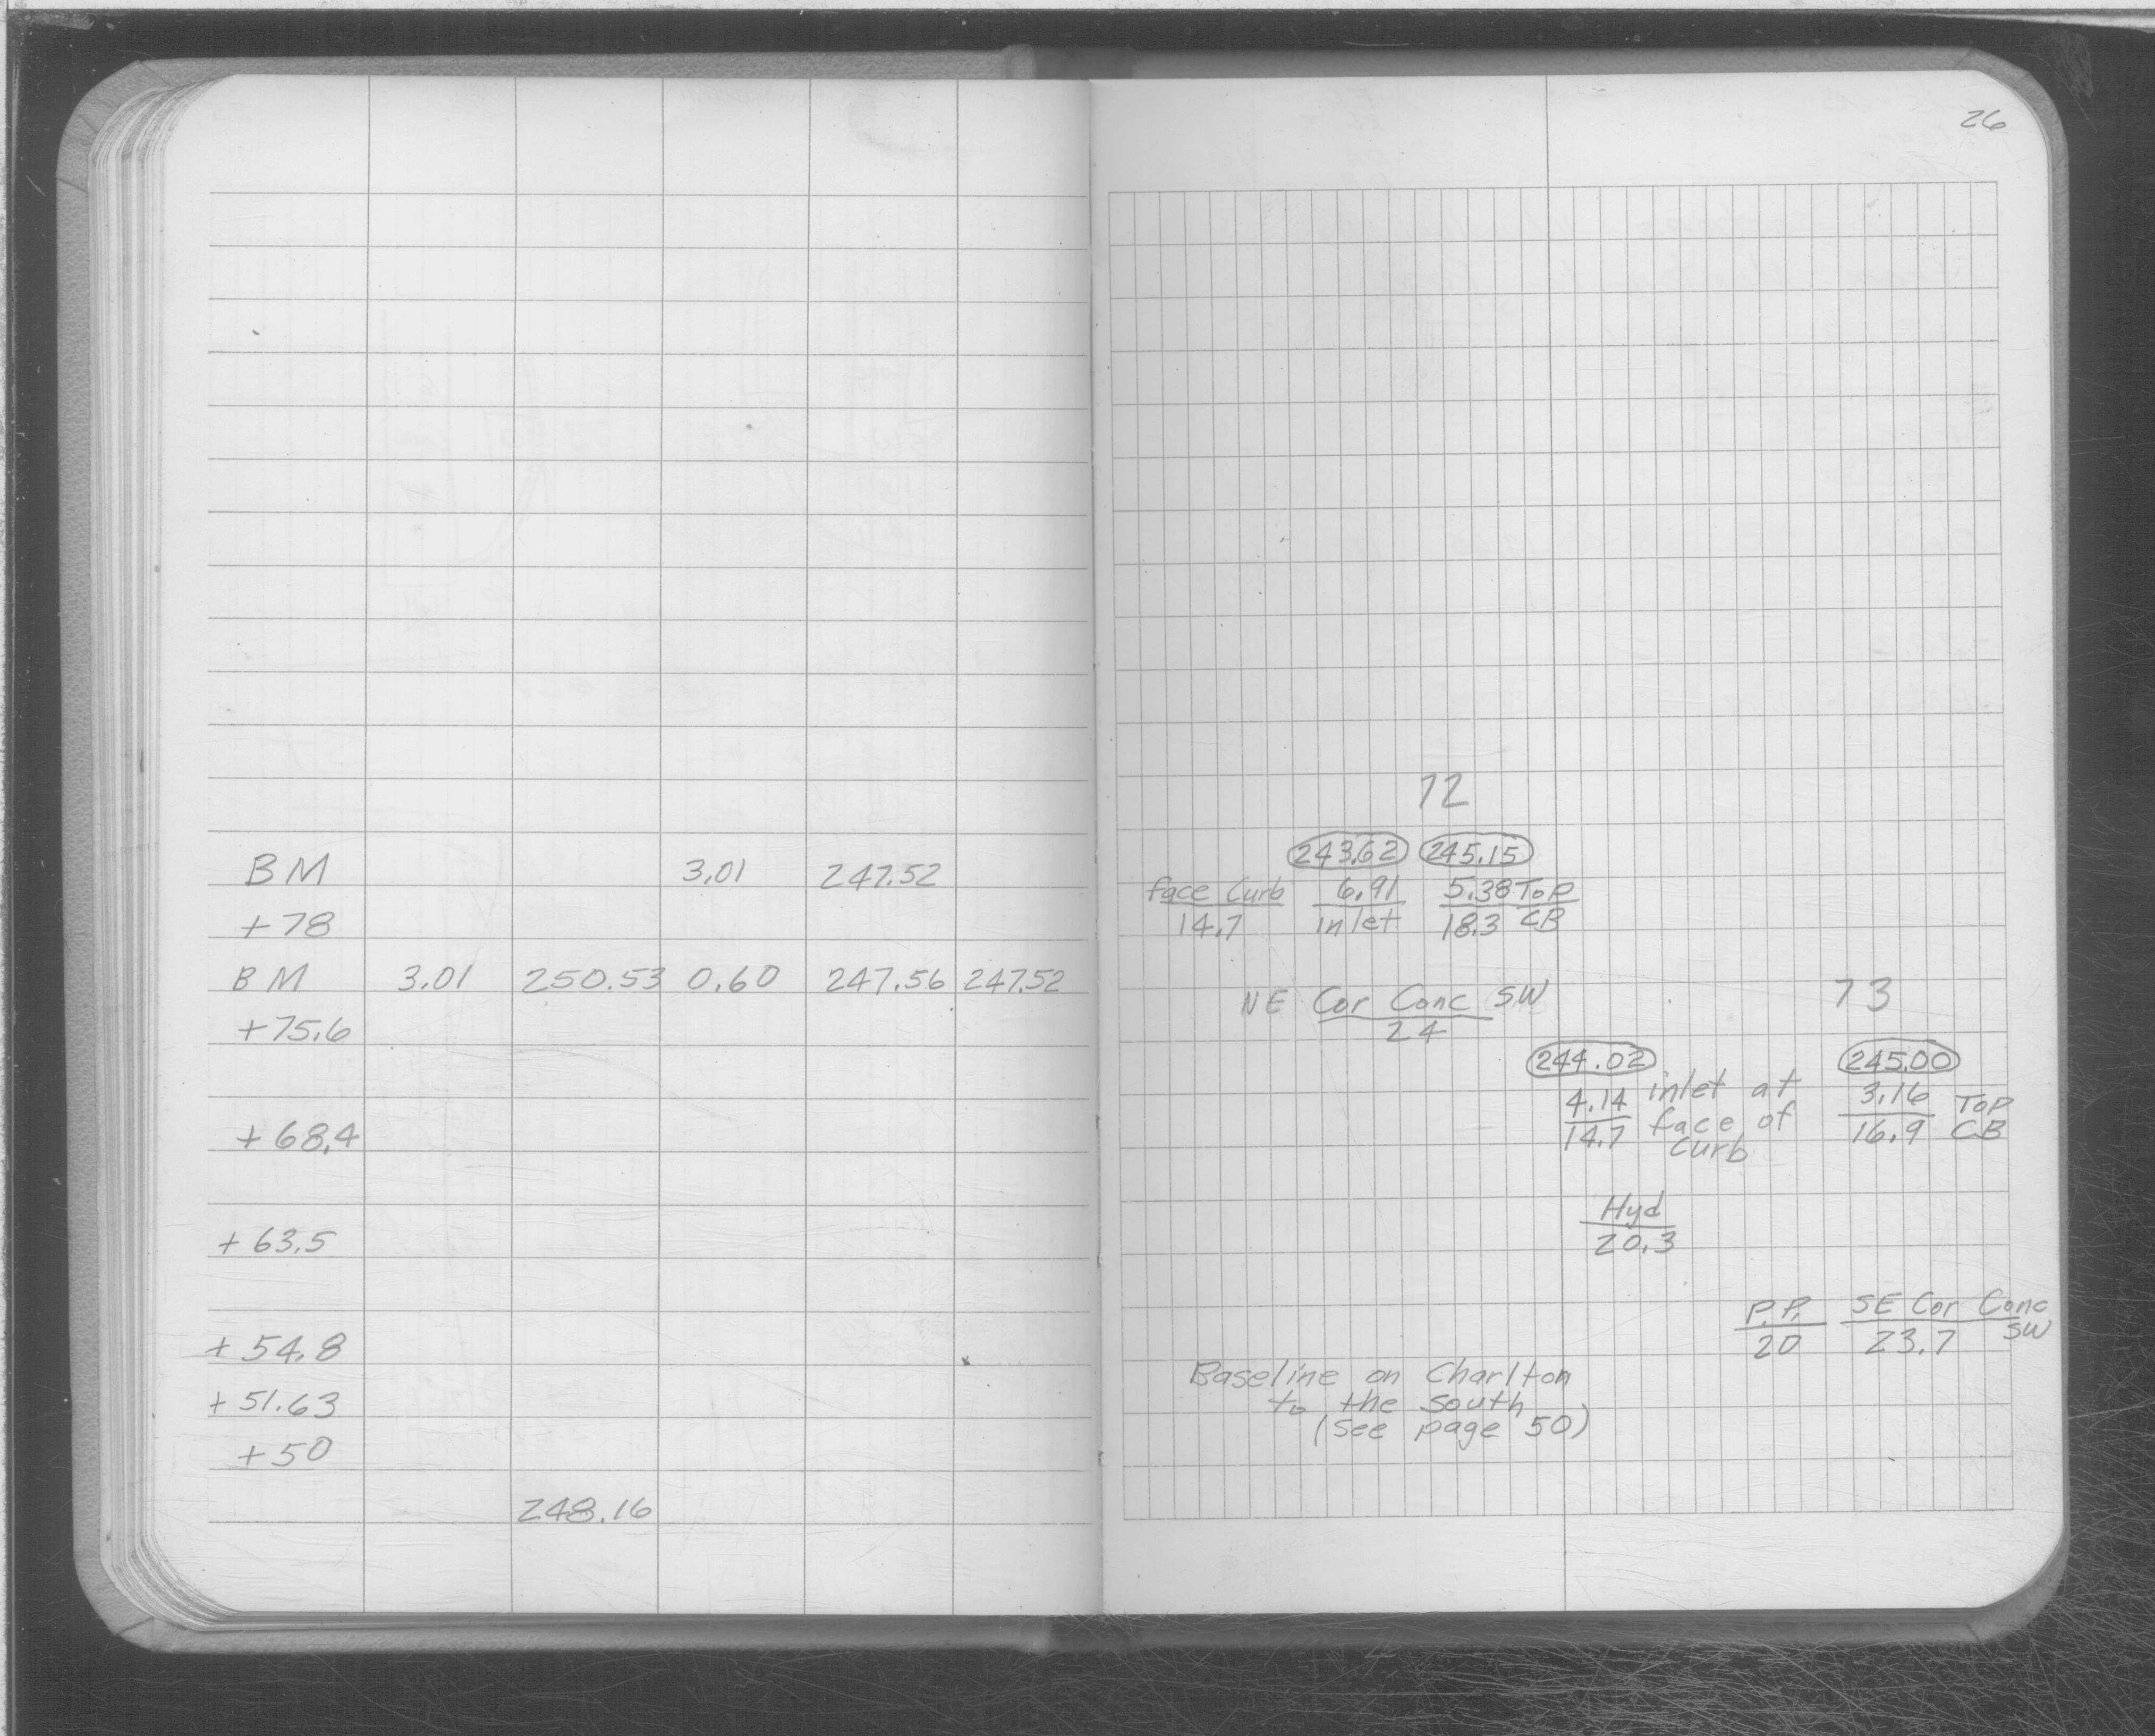 26
72
243.62 245.15
BM 3.01 247.52
face Curb 6.91 5.38 TOP
+78
14.7 inlet 18.3 CB
BM 3.01 250.53 0.60 247.56 247.52
NE Cor Conc SW 73
+75.6
24
244.02 245.00
4.14 inlet at 3.16 TOP
+68.4
14.7 face of 16.9 CB
curb
Hyd
+63.5
20.3
P.P. SE Cor Conc
SW
+54.8
20 23.7
Baseline on Charlton
+51.63
to the south
(see page 50)
+50
248.16